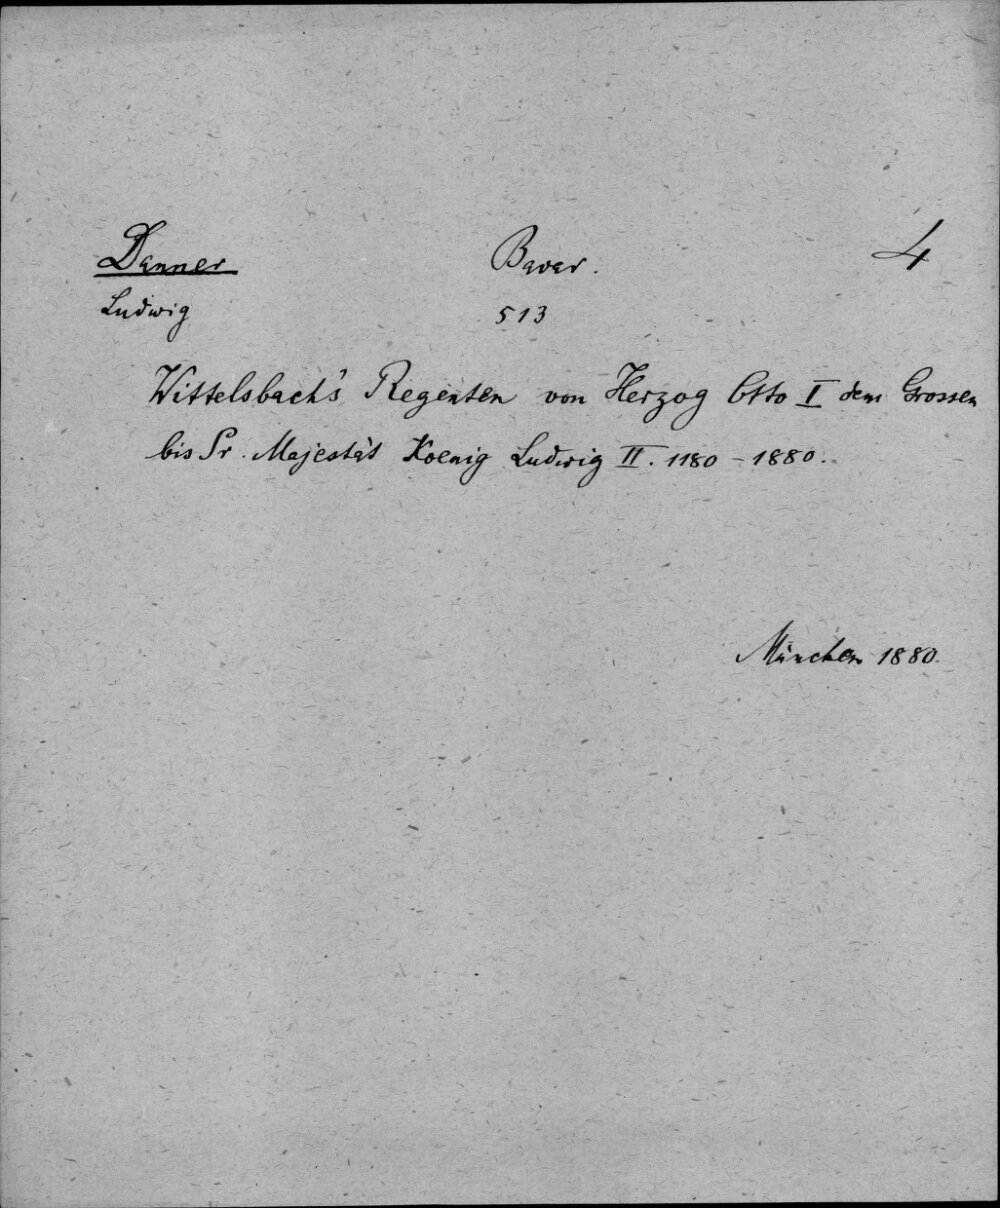 Danner Bavar. 4
Ludwig 513
Wittelsbach's Regenten von Herzog Otto I dem Grossen
bis Sr. Majestät Koenig Ludwig II. 1180-1880.
München 1880.